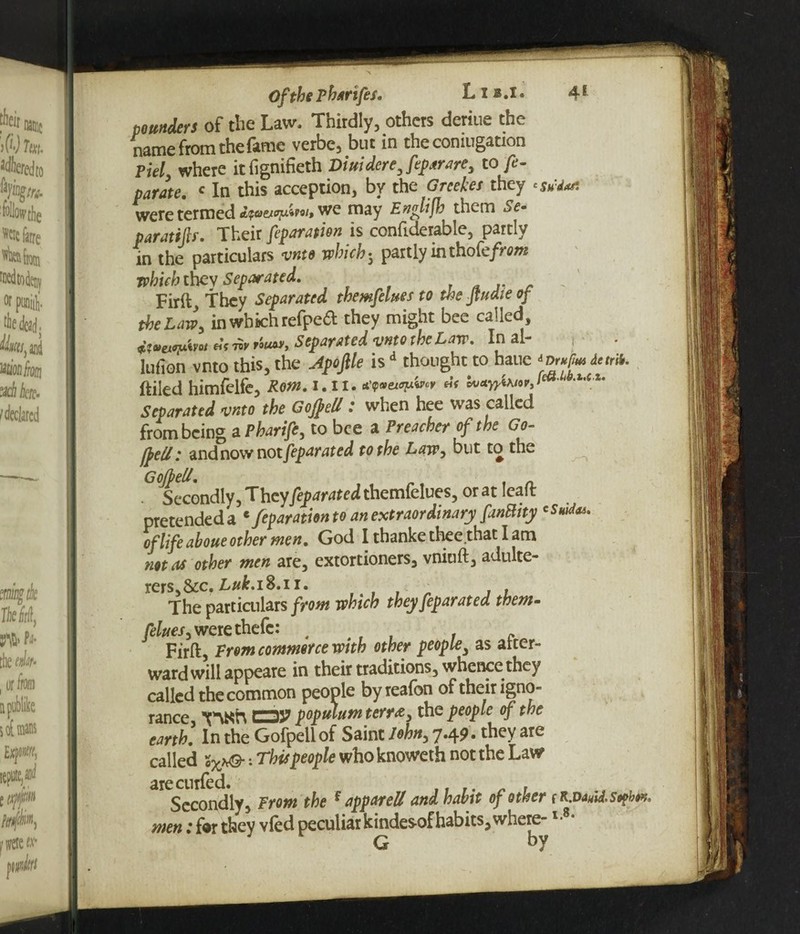 Of the Pharises. LIB.I. 41
pounders of the Law. Thirdly, others deriue the
name from the ſame verbe, but in the coniugation
Piel, where it ſignifieth Diuidere, ſeparare, to ſe-
parate. c In this acception, by the Greekes they
c Suidas.
were termed ἀφωρισμένοι, we may Engliſh them Se-
paratiſts. Their ſeparation is conſiderable, partly
in the particulars vnto which; partly in thoſe from
which they Separated.
Firſt, They Separated themſelues to the ſtudie of
the Law, in which reſpect they might bee called,
ἀφωρισμένοι εἰς τὸν νόμον, Separated vnto the Law. In al-
luſion vnto this, the Apoſtle is d thought to haue
d Druſius de trib.
ſtiled himſelfe, Rom. 1.11. ἀφωρισμένον εἰς ἐυαγγέλιον,
ſect.lib.2.c.2.
Separated vnto the Goſpell : when hee was called
from being a Phariſe, to bee a Preacher of the Go-
ſpell : and now not ſeparated to the Law, but to the
Goſpell.
Secondly, They ſeparated themſelues, or at leaſt
pretended a e ſeparation to an extraordinary ſanctity
e Suidas.
of life aboue other men. God I thanke thee that I am
not as other men are, extortioners, vniuſt, adulte-
rers, &c. Luk.18.11.
The particulars from which they ſeparated them-
ſelues, were theſe:
Firſt, From commerce with other people, as after-
ward will appeare in their traditions, whence they
called the common people by reaſon of their igno-
rance, עם הארץ populum terræ, the people of the
earth. In the Goſpell of Saint Iohn, 7.49. they are
called ὄχλος : This people who knoweth not the Law
are curſed.
Secondly, From the f apparell and habit of other
f R.Dauid.Sophon.
men : for they vſed peculiar kindes of habits, where-
1.8.
G by
their name
(i.) Text.
adhered to
ſaying tra-
follow the
were farre
when from
or puniſh-
the dead;
and
ation from
each here-
declared
The firſt,
or from